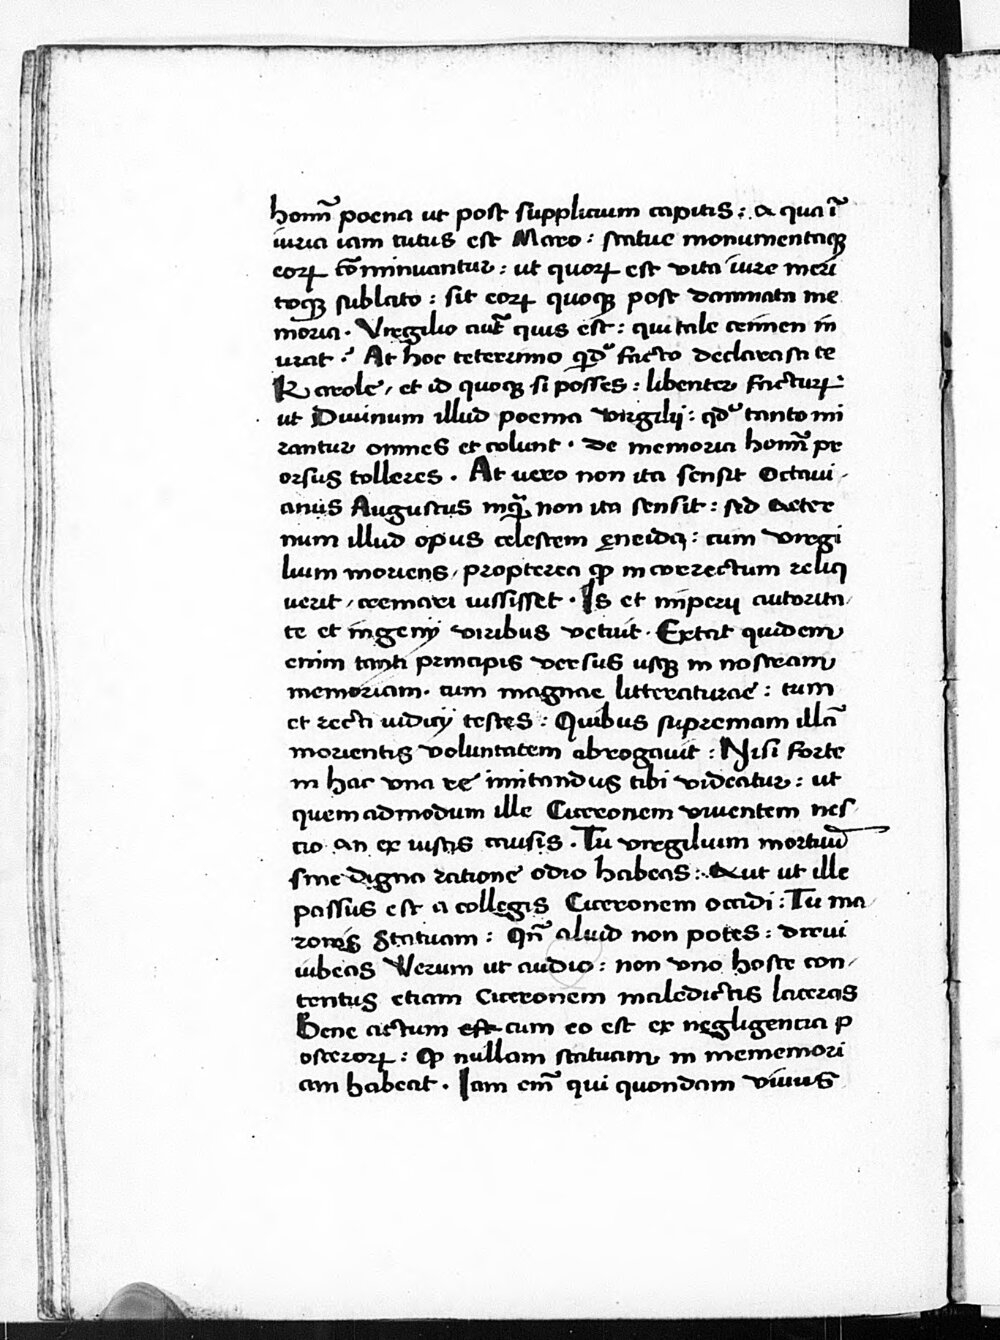 hom̄ poena ut post supplicium capitis : a qua ī
iuria iam tutus est Maro : statue monumentaqꝫ
eoꝝ cōminuantur : ut quoꝝ est vita iure meri
toqꝫ sublato : sit eoꝝ quoqꝫ post damnata me
moria . Vregilio aut̄ quis est : qui tale crimen in
urat . At hoc teterrimo qd facto declarasti te
Karole , et id quoqꝫ si posses : libenter facturꝝ
ut Divinum illud poema virgilij : qd tanto mi
rantur omnes et colunt . de memoria hom̄ pr
orsus tolleres . At vero non ita sensit Octavi
anus Augustus inqͣ non ita sensit : sed aeter
num illud opus celestem ęneida : cum vregi
lium moriens , propterea qꝫ incorrectum reliq
uerit , cremari iussisset . Is et imperij autorita
te et ingenij viribus vetuit . Extat quidem
enim tanti principis versus usqꝫ in nostram
memoriam . tum magnae litteraturae : tum
et recti iudicij testes : Quibus supremam illā
morientis voluntatem abrogavit : Nisi forte
in hac una re imitandus tibi videatur : ut
quemadmodum ille Ciceronem viventem nes
cio an ex iustis causis . Tu vregilium mortuū
sine digna ratione odio habeas : aut ut ille
passus est a collegis Ciceronem occidi : Tu ma
ronis Statuam : Qn̄ aliud non potes : dirui
iubeas Verum ut audio : non uno hoste con
tentus etiam Ciceronem maledictis laceras
Bene actum est cum eo est ex negligentia p
osteroꝝ : qꝫ nullam statuam in mememori
am habeat . Iam em̄ qui quondam vivus